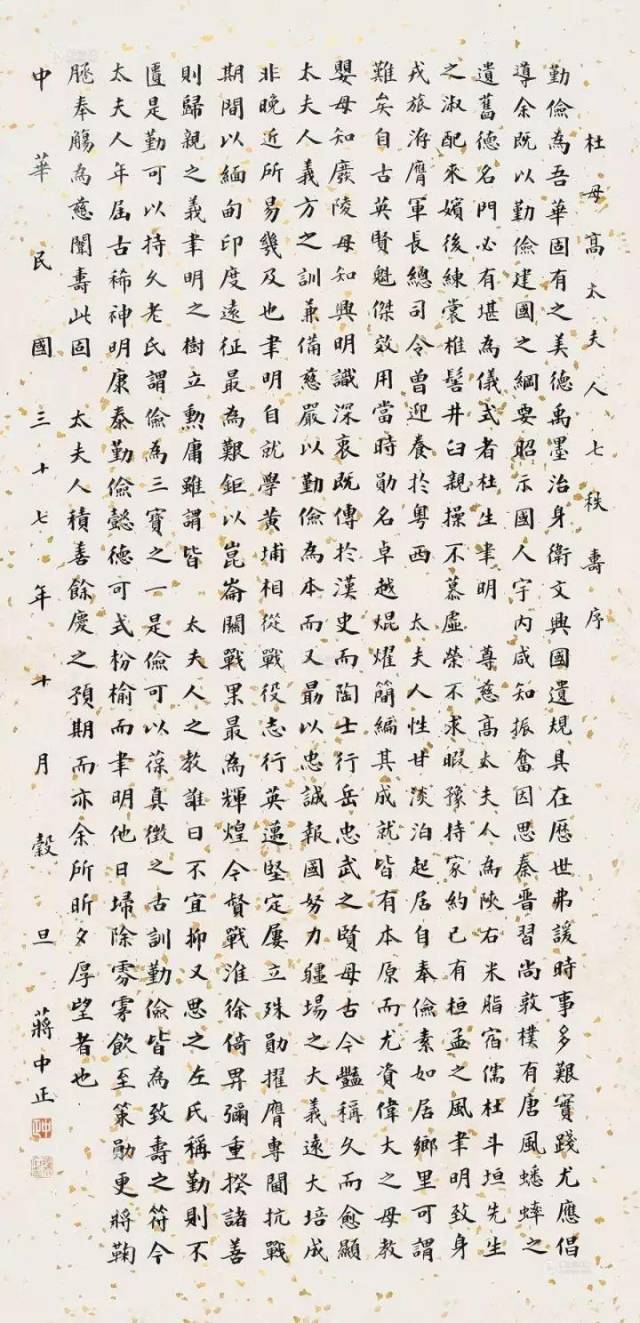 杜母高太夫人七秩壽序
勤儉為吾華固有之美德禹墨治身衛文興國遺規具在歷世弗諼時事多艱實踐尤應倡
導余既以勤儉建國之綱要昭示國人宇內咸知振奮因思秦晉習尚敦樸有唐風蟋蟀之
遺舊德名門必有堪為儀式者杜生聿明 尊慈高太夫人為陝右米脂宿儒杜斗垣先生
之淑配來嬪後練裳椎髻井臼親操不慕虛榮不求暇豫持家約己有桓孟之風聿明致身
戎旅洊膺軍長總司令曾迎養於粵西 太夫人性甘淡泊起居自奉儉素如居鄉里可謂
難矣自古英賢魁傑效用當時勛名卓越焜燿簡編其成就皆有本原而尤資偉大之母教
嬰母知廢陵母知興明識深衷既傳於漢史而陶士行岳忠武之賢母古今豔稱久而愈顯
太夫人義方之訓兼備慈嚴以勤儉為本而又勗以忠誠報國努力疆場之大義遠大培成
非晚近所易幾及也聿明自就學黃埔相從戰役志行英邁堅定屢立殊勛擢膺專閫抗戰
期間以緬甸印度遠征最為艱鉅以崑崙關戰果最為輝煌今督戰淮徐倚畀彌重揆諸善
則歸親之義聿明之樹立勳庸雖謂皆 太夫人之教誰曰不宜抑又思之左氏稱勤則不
匱是勤可以持久老氏謂儉為三寶之一是儉可以葆真徵之古訓勤儉皆為致壽之符今
太夫人年屆古稀神明康泰勤儉懿德可式枌榆而聿明他日埽除雰霿飲至策勛更將鞠
𦜕奉觴為慈闈壽此固 太夫人積善餘慶之預期而亦余所昕夕厚望者也
中華民國三十七年十月穀旦 蔣中正